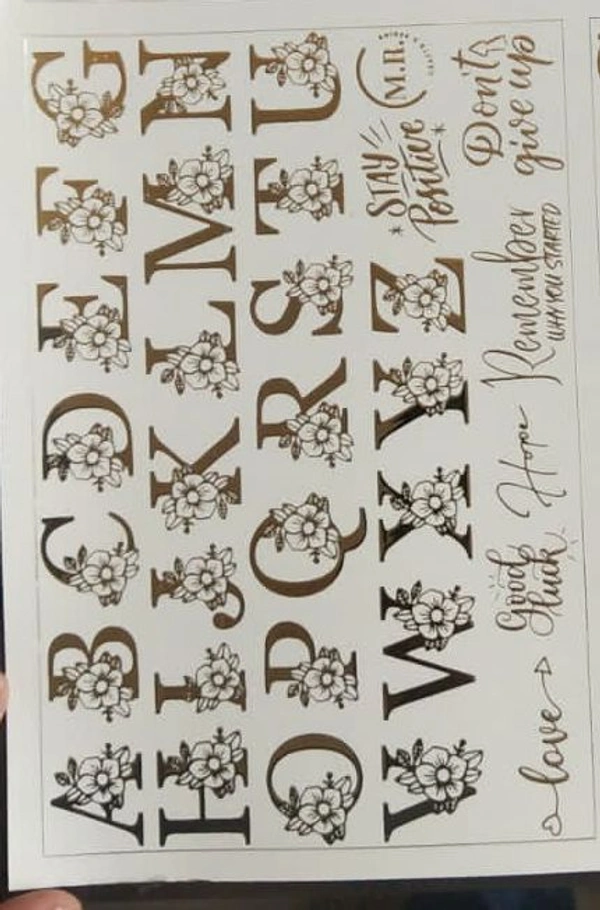 A B C D E F G
H I J K L M N
O P Q R S T U
V W X Y Z
STAY
Positive
M.R.
love
Good
luck
Hope
Remember
WHY YOU STARTED
Don't
give up